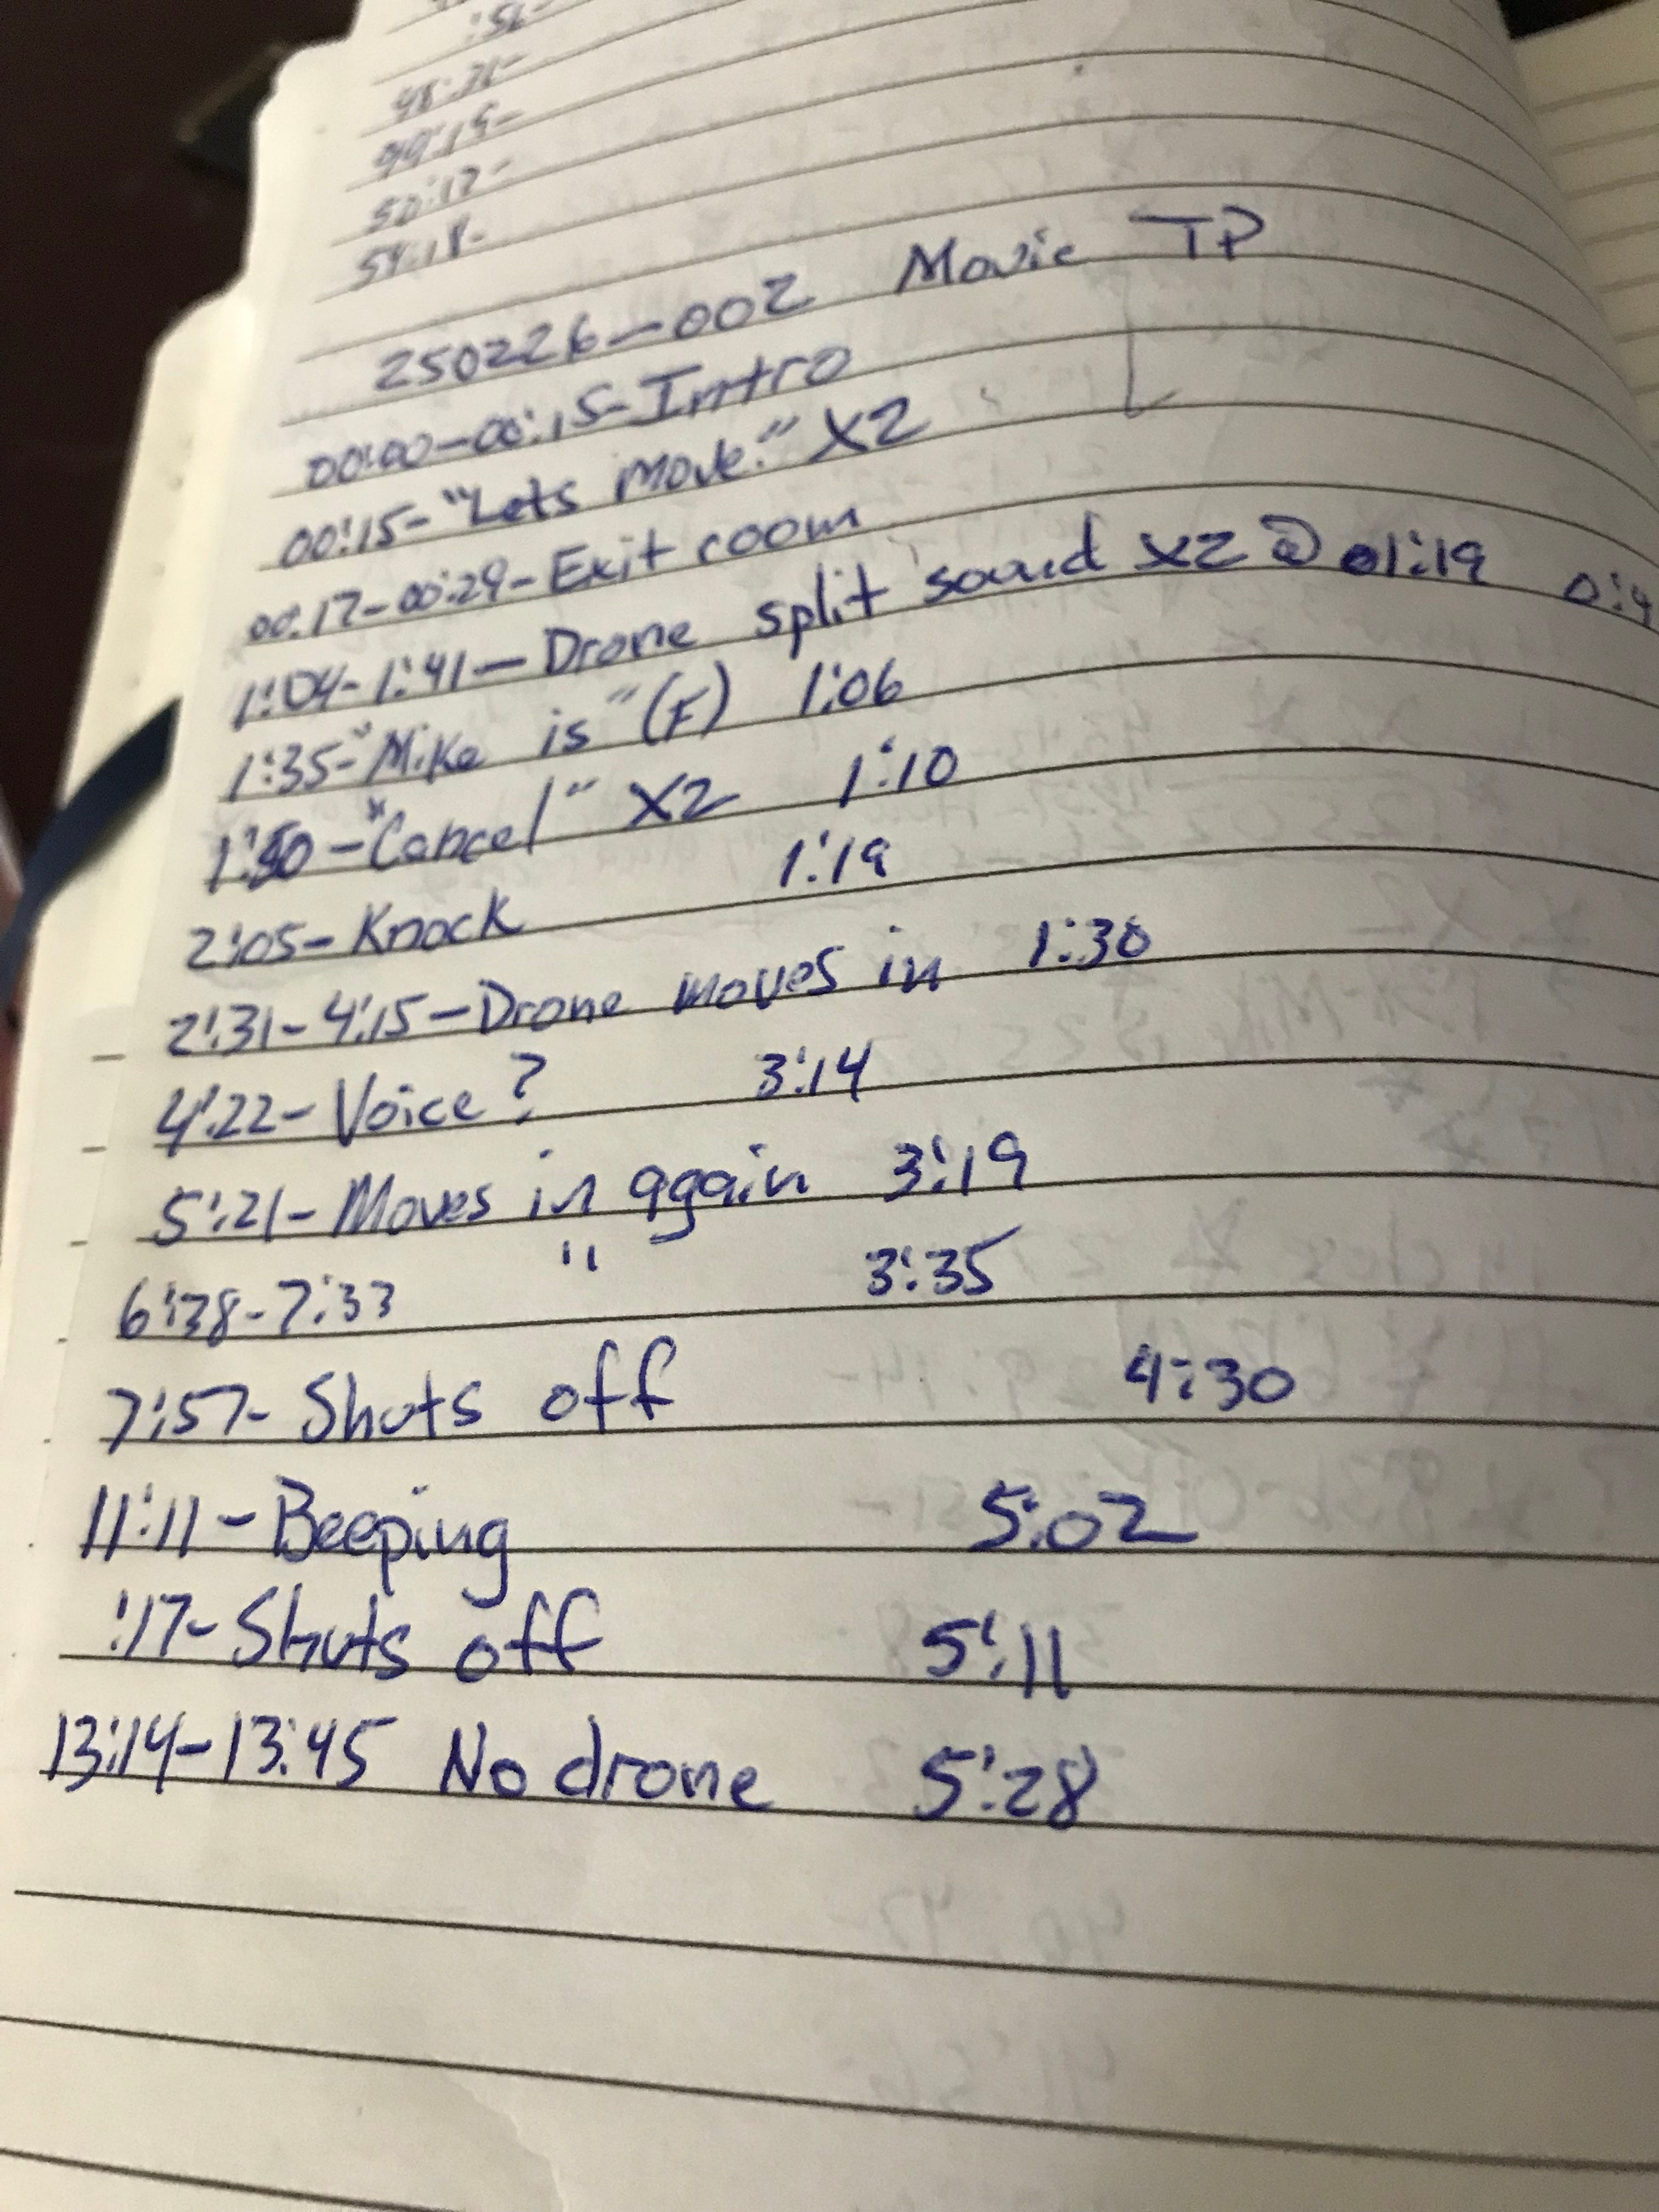 :56-
48:31-
49:15-
50:17-
54:18-
250226-002 Movie TP
00:00-00:15-Intro
00:15-"Lets move." X2
00:17-00:29-Exit room
1:04-1:41-Drone split sound X2 @ 01:19 0:4
1:35-"Mike is" (F) 1:06
1:50-"Cancel" X2 1:10
2:05-Knock 1:19
2:31-4:15-Drone moves in 1:30
4:22-Voice? 3:14
5:21-Moves in again 3:19
6:38-7:33 " 3:35
7:57-Shuts off 4:30
11:11-Beeping 5:02
:17-Shuts off 5:11
13:14-13:45 No drone 5:28